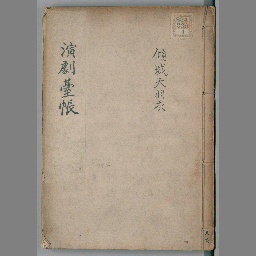 傾城天羽衣
演劇臺帳